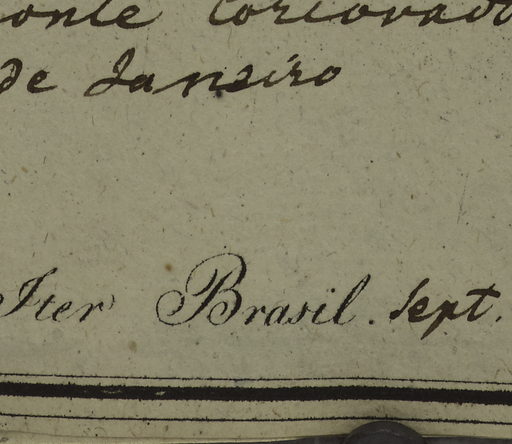 onte Corcovado
de Janeiro
Iter Brasil. Sept.